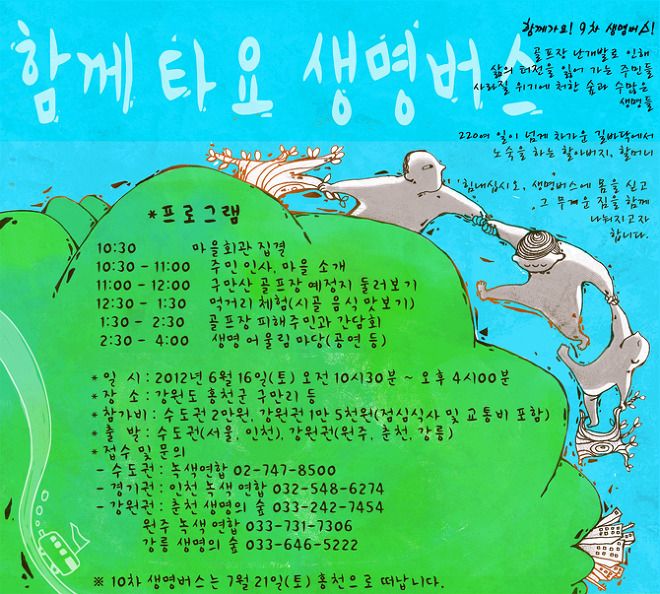 함께 타요 생명버스
함께가요! 9차 생명버스!
골프장 난개발로 인해
삶의 터전을 잃어 가는 주민들
사라질 위기에 처한 숲과 수많은
생명들
220여 일이 넘게 차가운 길바닥에서
노숙을 하는 할아버지, 할머니
힘내십시오, 생명버스에 몸을 싣고
그 무거운 짐을 함께
나눠지고자
합니다.
*프로그램
10:30 마을회관 집결
10:30 - 11:00 주민 인사, 마을 소개
11:00 - 12:00 구만산 골프장 예정지 둘러보기
12:30 - 1:30 먹거리 체험(시골 음식 맛보기)
1:30 - 2:30 골프장 피해주민과 간담회
2:30 - 4:00 생명 어울림 마당(공연 등)
* 일 시 : 2012년 6월 16일(토) 오전 10시30분 ~ 오후 4시00분
* 장 소 : 강원도 홍천군 구만리 등
* 참가비 : 수도권 2만원, 강원권 1만 5천원(점심식사 및 교통비 포함)
* 출 발 : 수도권(서울, 인천), 강원권(원주, 춘천, 강릉)
* 접수 및 문의
- 수도권 : 녹색연합 02-747-8500
- 경기권 : 인천 녹색 연합 032-548-6274
- 강원권 : 춘천 생명의 숲 033-242-7454
원주 녹색 연합 033-731-7306
강릉 생명의 숲 033-646-5222
※ 10차 생명버스는 7월 21일(토) 홍천으로 떠납니다.